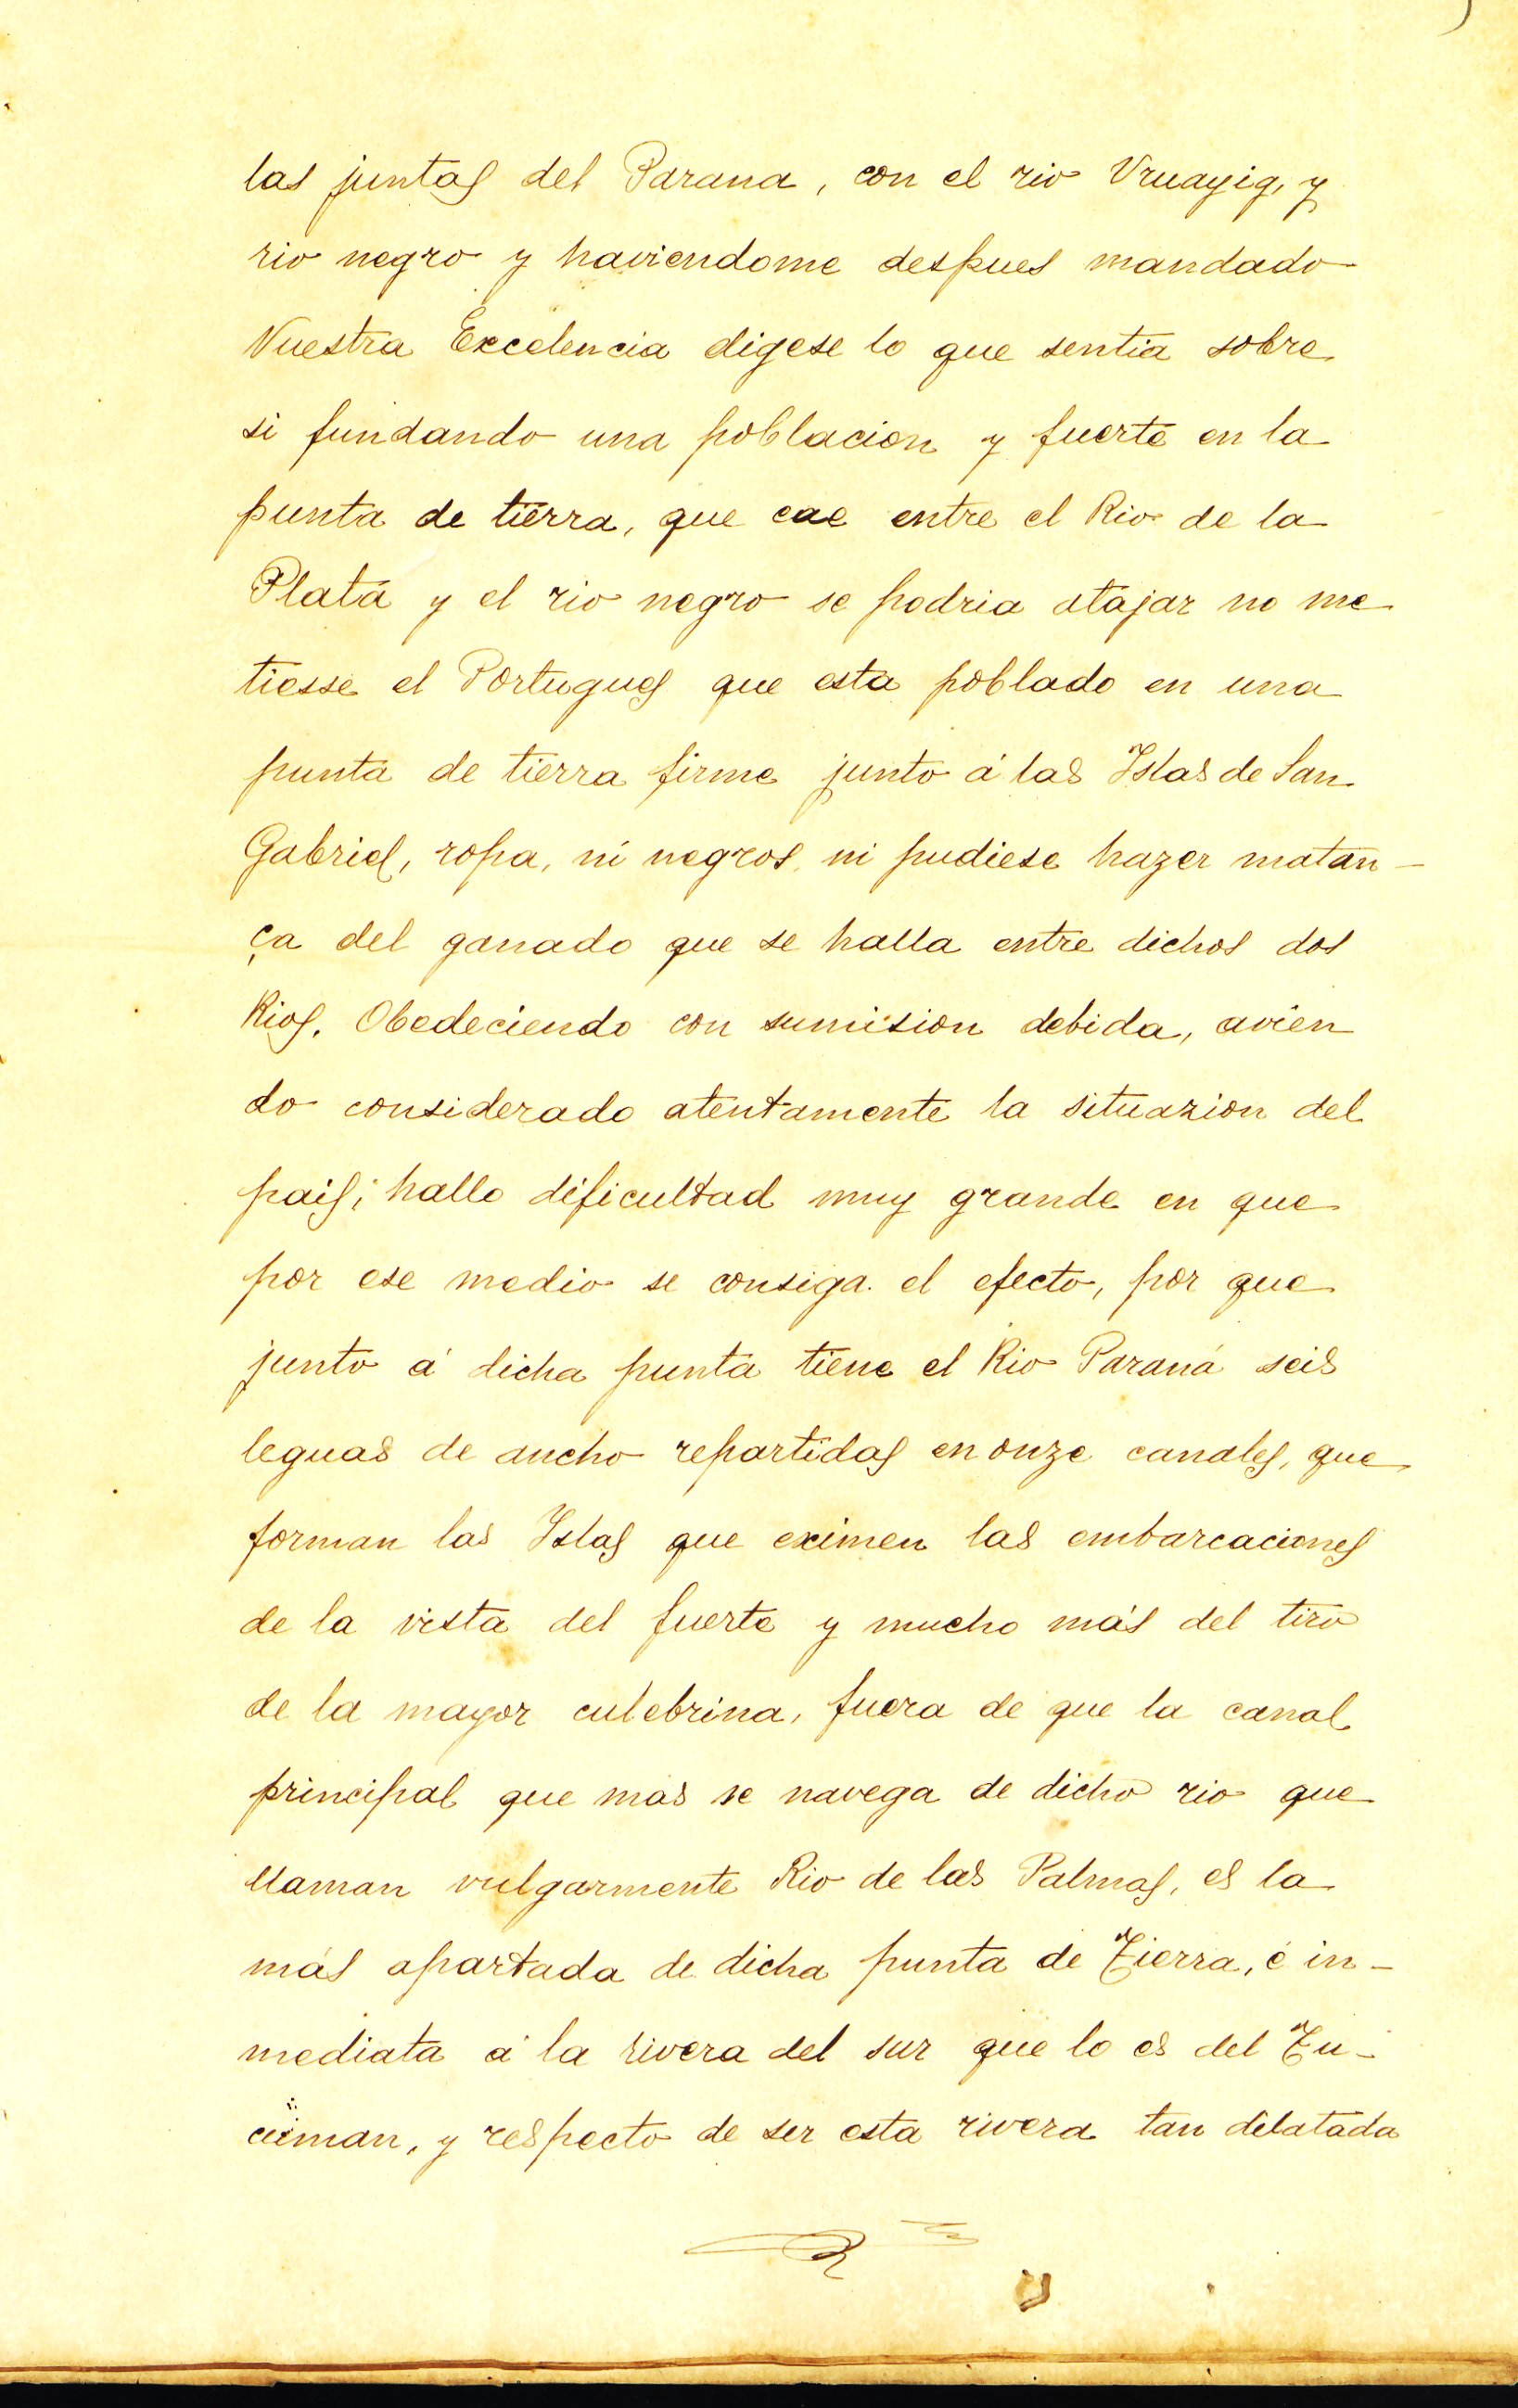 las juntas del Parana, con el rio Vruayig, y
rio negro y haviendome despues mandado
Vuestra Excelencia digese lo que sentia sobre
si fundando una poblacion y fuerte en la
punta de tierra, que cae entre el Rio de la
Plata y el rio negro se podria atajar no me
tiesse el Portugues que esta poblado en una
punta de tierra firme junto á las Islas de San
Gabriel, ropa, ni negros, ni pudiese hazer matan-
ça del ganado que se halla entre dichos dos
Rios. Obedeciendo con sumision debida, avien
do considerado atentamente la situazion del
pais; hallo dificultad muy grande en que
por ese medio se consiga el efecto, por que
junto á dicha punta tiene el Rio Paraná seis
leguas de ancho repartidas en onze canales, que
forman las Islas que eximen las embarcaciones
de la vista del fuerte y mucho más del tiro
de la mayor culebrina, fuera de que la canal
principal que mas se navega de dicho rio que
llaman vulgarmente Rio de las Palmas, es la
más apartada de dicha punta de Tierra, é in-
mediata á la rivera del sur que lo es del Tu-
cuman, y respecto de ser esta rivera tan dilatada